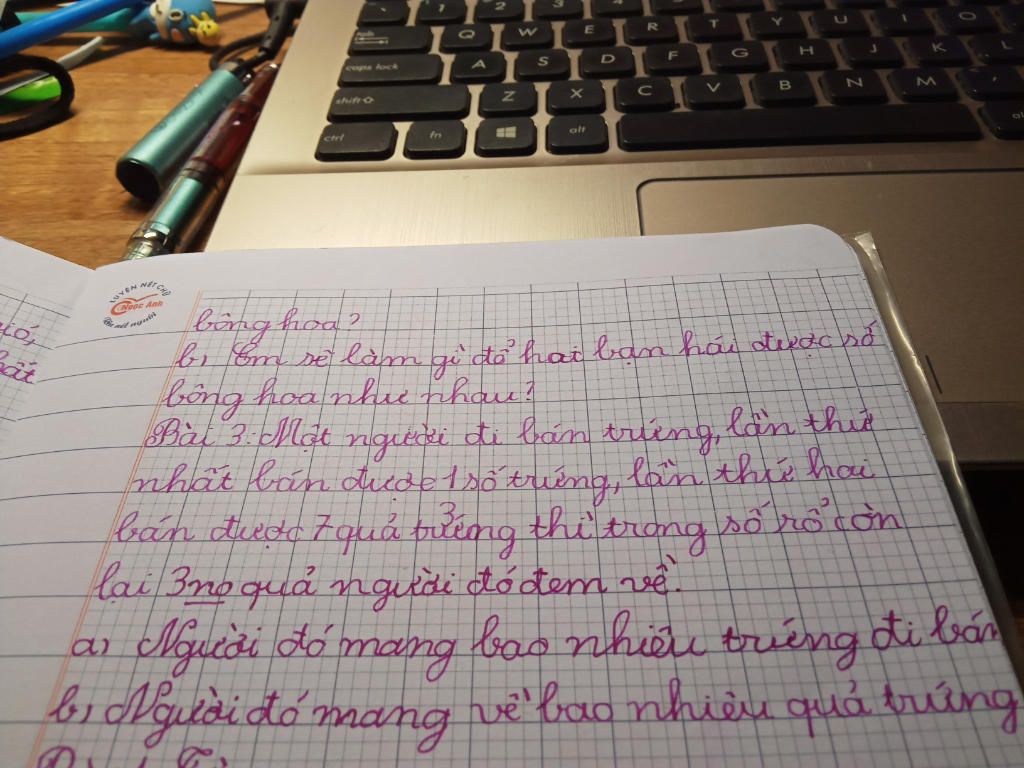 ` 1 2 3 4 5 6 7 8
tab Q W E R T Y U I O
caps lock A S D F G H J K L
shift Z X C V B N M ,
ctrl fn alt
LUYỆN NÉT CHỮ
Ngọc Ánh
nét người
bông hoa?
b, Em sẽ làm gì để hai bạn hái được số
bông hoa như nhau?
Bài 3: Một người đi bán trứng, lần thứ
nhất bán được 1 số trứng, lần thứ hai
bán được 7 quả trứng thì trong số rổ còn
lại 3 quả người đó đem về.
a, Người đó mang bao nhiêu trứng đi bán
b, Người đó mang về bao nhiêu quả trứng